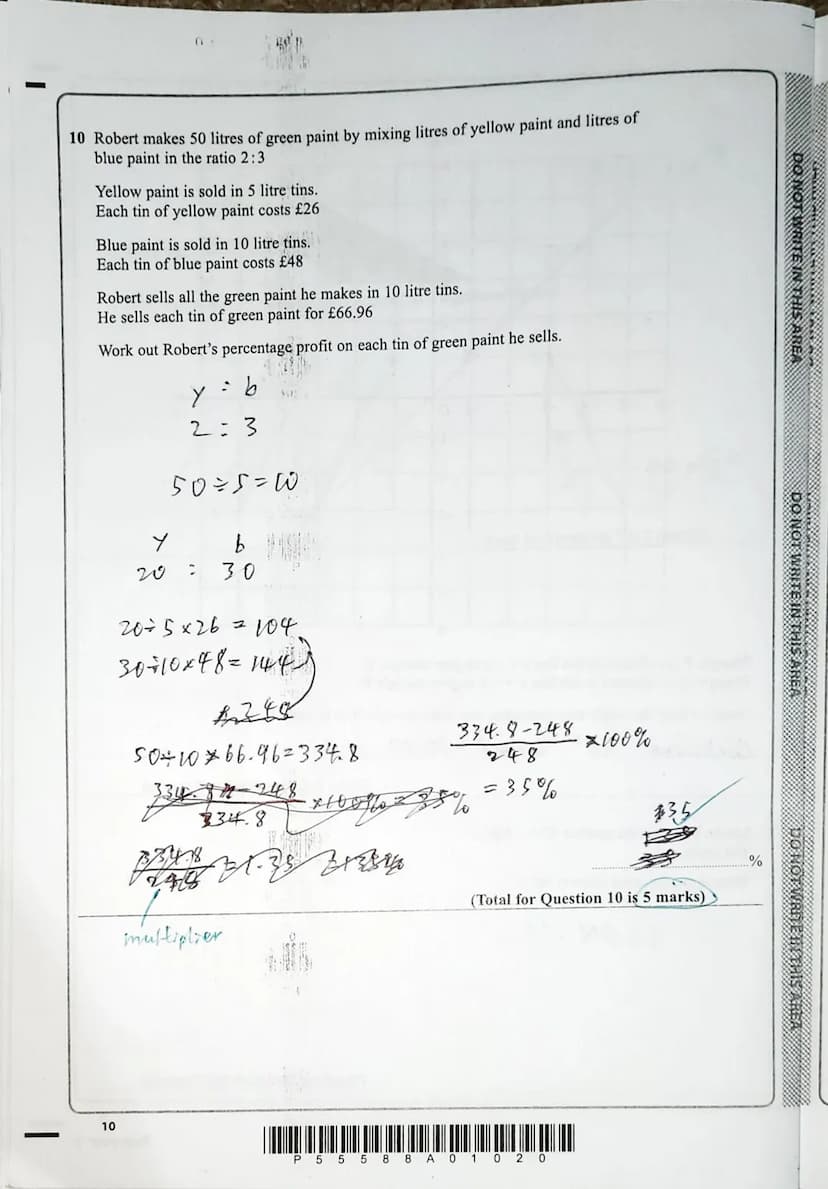 10 Robert makes 50 litres of green paint by mixing litres of yellow paint and litres of
blue paint in the ratio 2:3
Yellow paint is sold in 5 litre tins.
Each tin of yellow paint costs £26
Blue paint is sold in 10 litre tins.
Each tin of blue paint costs £48
Robert sells all the green paint he makes in 10 litre tins.
He sells each tin of green paint for £66.96
Work out Robert's percentage profit on each tin of green paint he sells.
y : b
2 : 3
50÷5=10
y b
20 : 30
20÷5×26 = 104
30÷10×48= 144
248
50÷10×66.96=334.8
334.8-248
334.8 ×100% = 35%
334.8-248
248 ×100%
= 35%
334.8
248 =1.35
35
%
(Total for Question 10 is 5 marks)
multiplier
DO NOT WRITE IN THIS AREA
DO NOT WRITE IN THIS AREA
DO NOT WRITE IN THIS AREA
10
P55588A01020